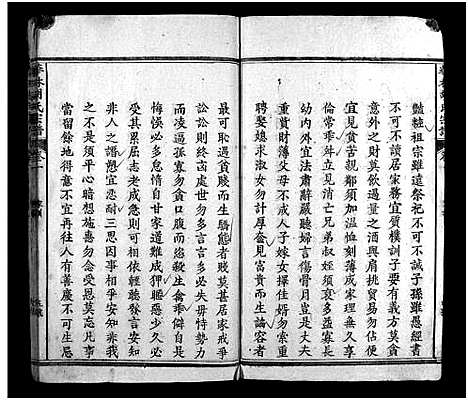 豔粧祖宗雖遠祭祀不可不誠子孫雖愚經書
不可不讀居家務宜質樸訓子要有義方莫貪
意外之財莫飲過量之酒與肩挑貿易勿佔便
宜見貧苦親鄰須加溫恤刻薄成家理無久享
倫常乖舛立見消亡兄弟叔姪須衰多益寡長
幼內外宜法肅辭嚴聽婦言傷骨月豈是丈夫
重貲財薄父母不成人子嫁女擇佳婿勿索重
聘娶媳求淑女勿計厚奩見富貴而生諂容者
最可恥遇貧賤而生驕態者賤莫甚居家戒爭
訟訟則終凶處世勿多言言多必失毋恃勢力
而凌逼孤寡勿貪口腹而恣殺生禽乖僻自是
悔悞必多怠惰自甘家道難成狎暱惡少久必
受其累屈志老成急則可相依輕聽發言安知
非人之譖愬宜忍耐三思因事相爭安知非我
之不是須平心暗想施惠勿念受恩莫忘凡事
當留餘地得意不宜再往人有善慶不可生忌